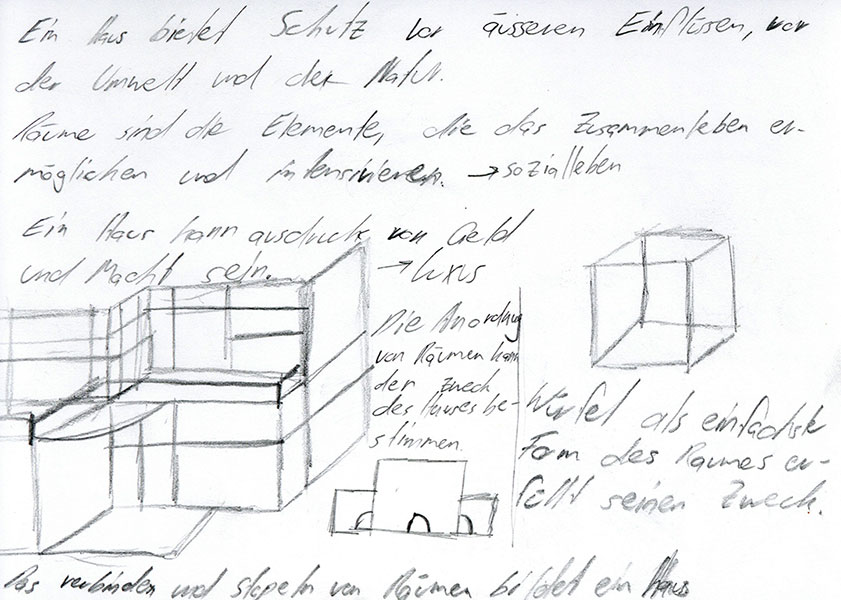 Ein Haus bietet Schutz vor äusseren Einflüssen, vor
der Umwelt und der Natur.
Räume sind die Elemente, die das Zusammenleben er-
möglichen und intensivieren. → sozialleben
Ein Haus kann ausdruck von Geld
und Macht sein. → luxus
Die Anordnug
von Räumen kann
der Zweck
des Hauses be-
stimmen.
Würfel als einfachste
Form des Raumes er-
füllt seinen Zweck.
Das verbinden und stapeln von Räumen bildet ein Haus